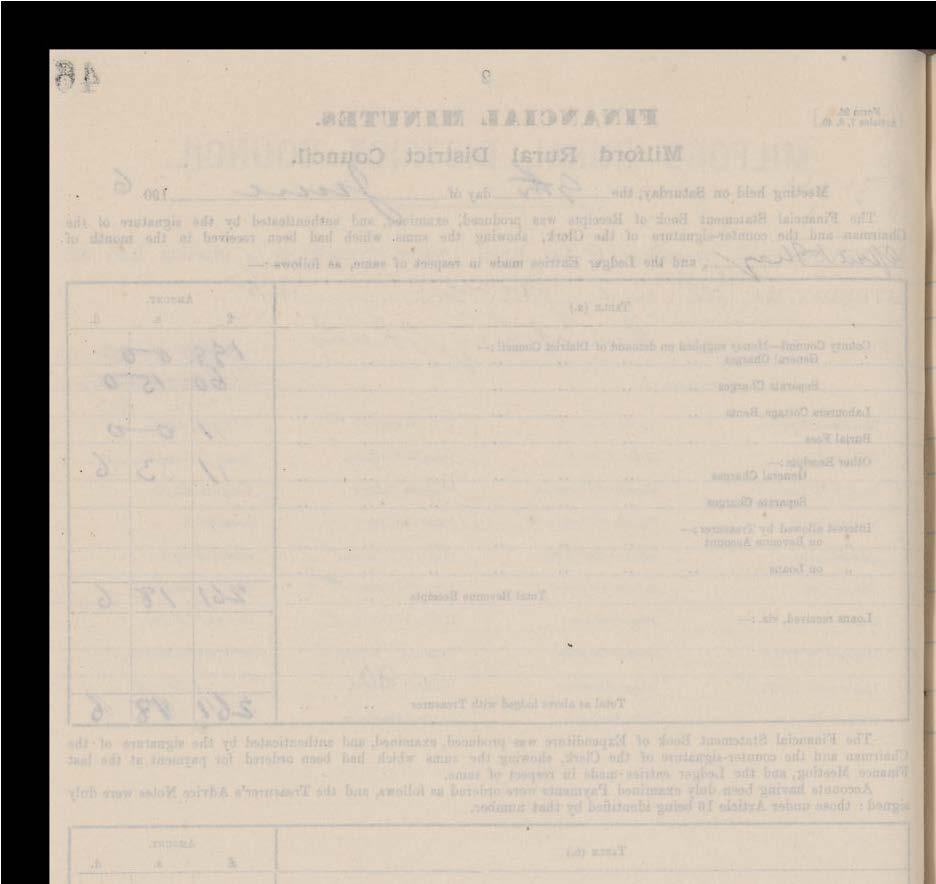 46
2
Form 26.
Articles 7, 8, 40.
FINANCIAL MINUTES.
Milford Rural District Council.
Meeting held on Saturday, the 9th day of June 1906
The Financial Statement Book of Receipts was produced, examined, and authenticated by the signature of the
Chairman and the counter-signature of the Clerk, showing the sums which had been received in the month of
April & May, and the Ledger Entries made in respect of same, as follows:—
TABLE (a.)
AMOUNT.
£ s. d.
County Council—Money supplied on demand of District Council:—
General Charges 199 0 0
Separate Charges 60 15 0
Labourers Cottage Rents
Burial Fees 1 0 0
Other Receipts:—
General Charges 1 3 6
Separate Charges
Interest allowed by Treasurer:—
" on Revenue Account
" on Loans
Total Revenue Receipts 261 18 6
Loans received, viz.:—
Total as above lodged with Treasurer 261 18 6
The Financial Statement Book of Expenditure was produced, examined, and authenticated by the signature of the
Chairman and the counter-signature of the Clerk, showing the sums which had been ordered for payment at the last
Finance Meeting, and the Ledger entries made in respect of same.
Accounts having been duly examined Payments were ordered as follows, and the Treasurer's Advice Notes were duly
signed: those under Article 16 being identified by that number.
TABLE (b.)
AMOUNT.
£ s. d.